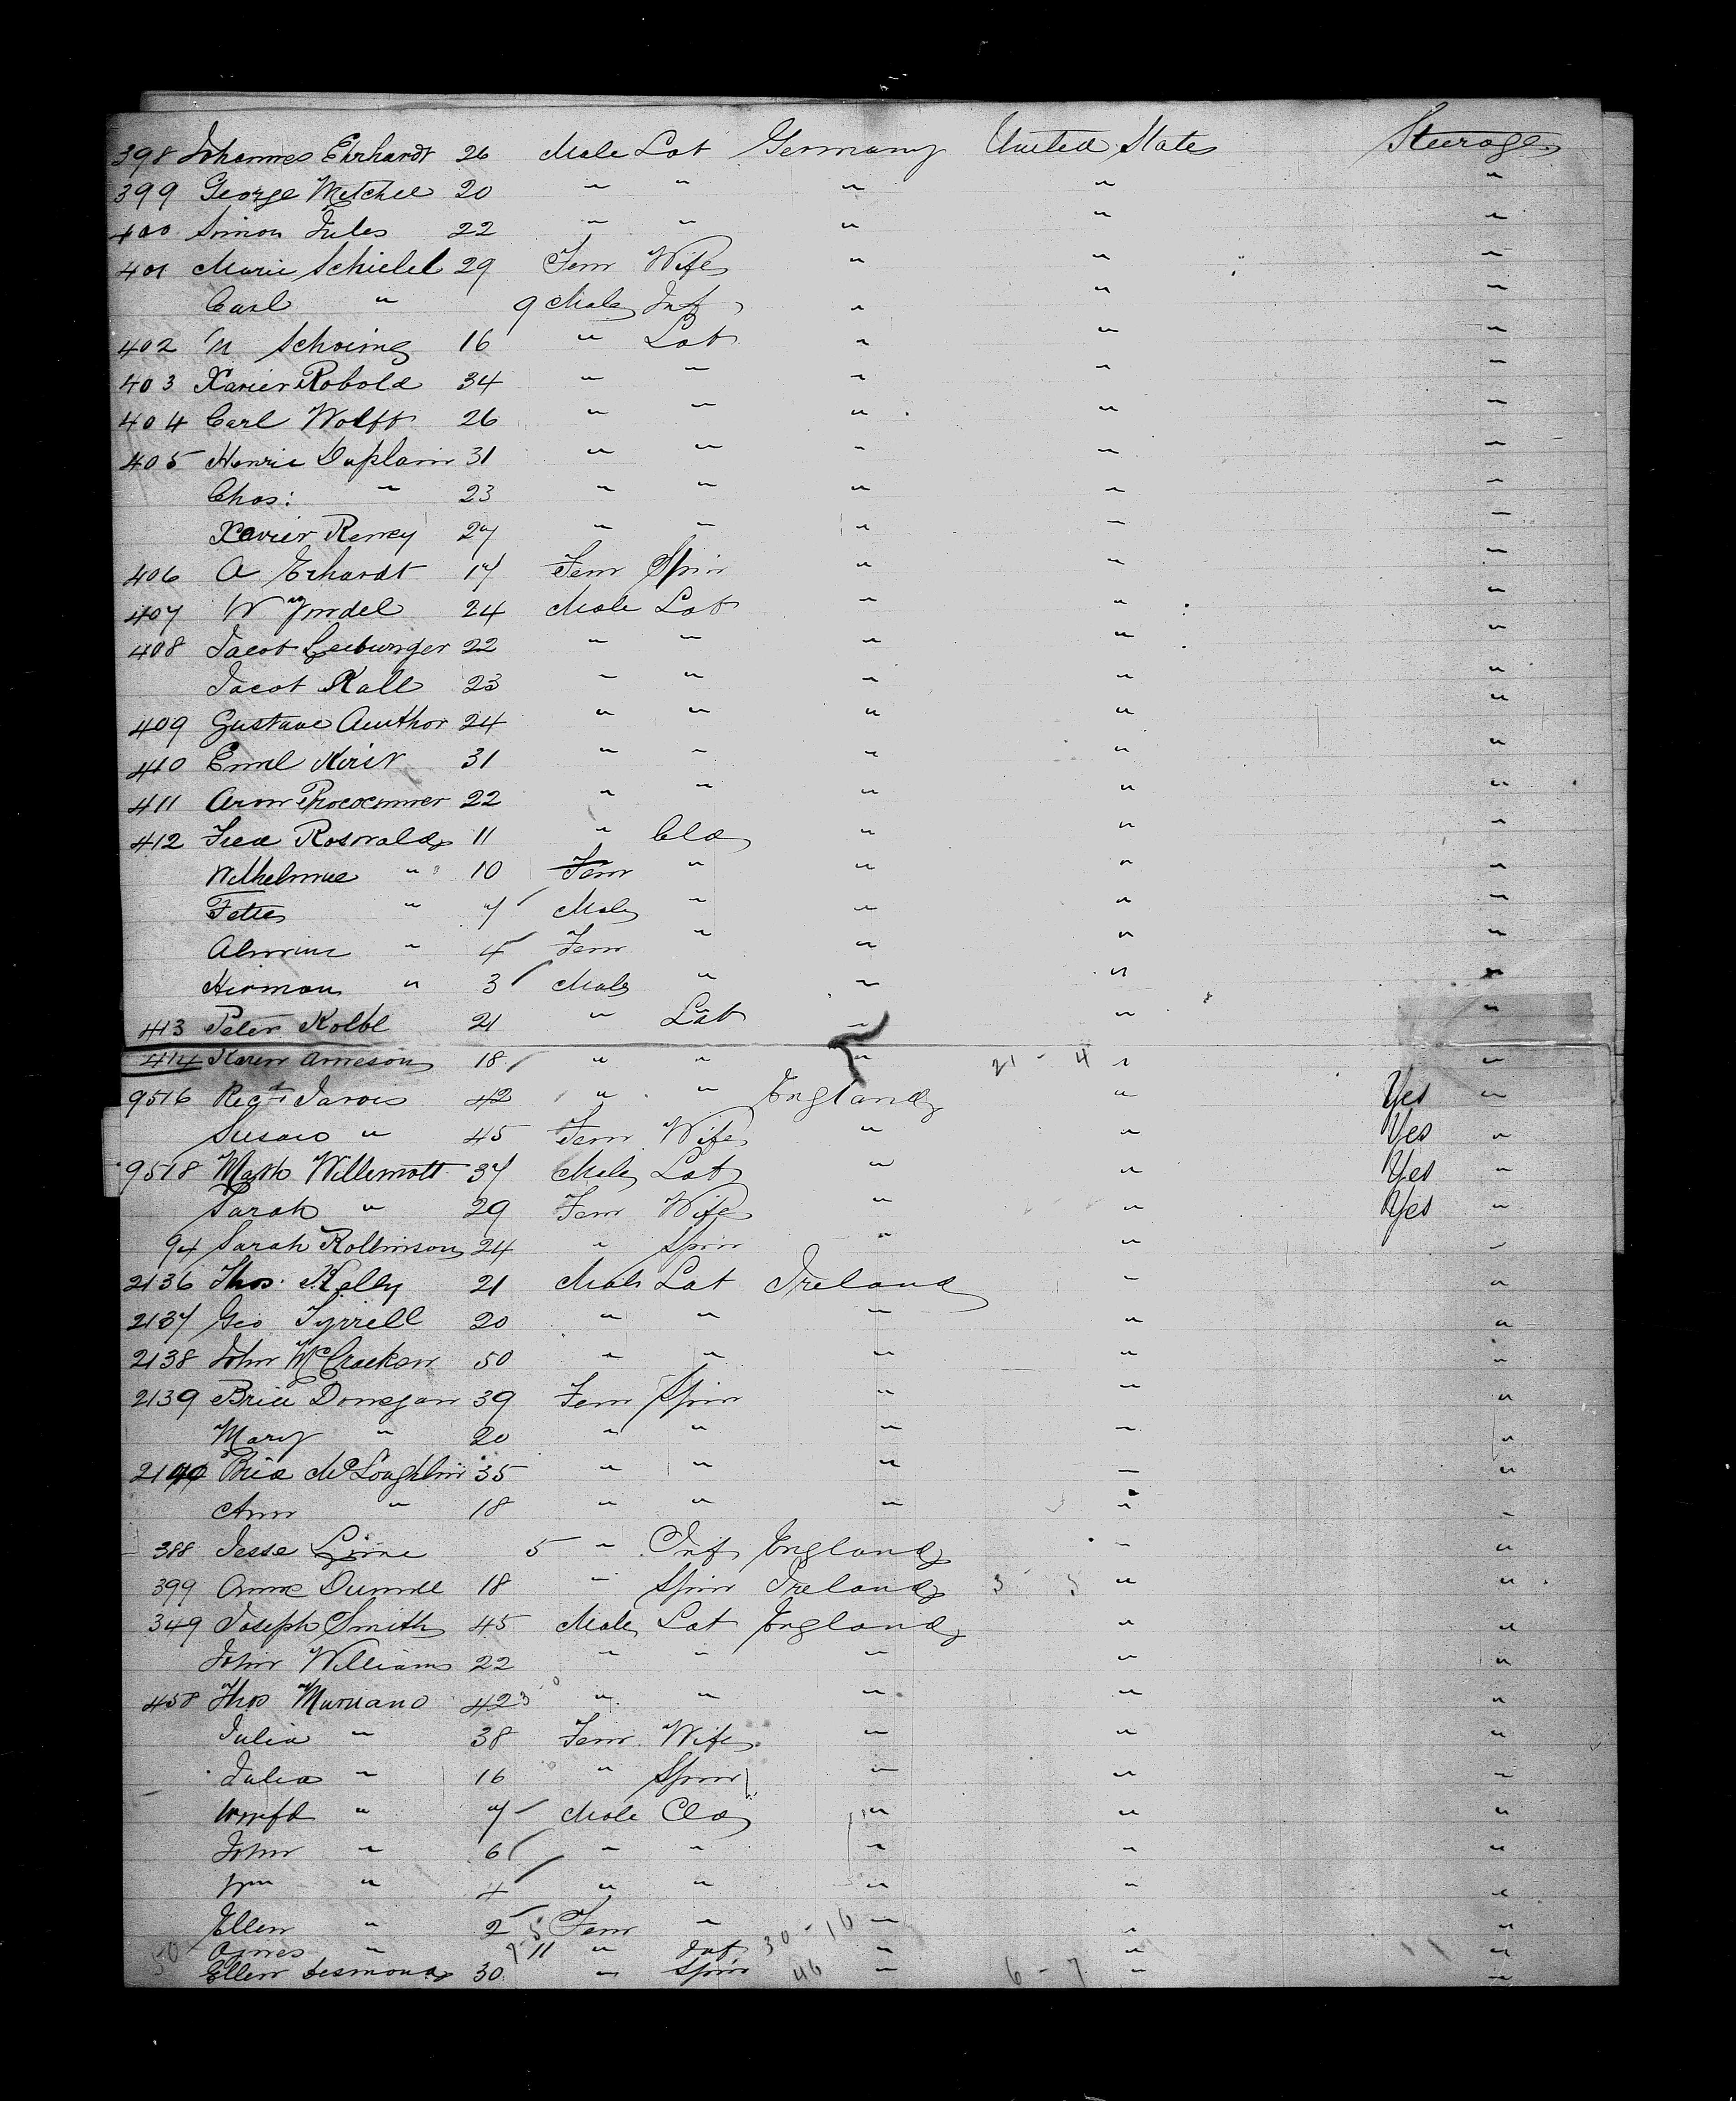 398 Johannes Ehrhardt 26 Male Lab Germany United States Steerage
399 George Mitchel 20 " " " " "
400 Simon Jules 22 " " " " "
401 Marie Schiebel 29 Fem Wife " " "
Carl " 9 Male Inf " " "
402 16 " Lab " " "
403 Xavier Robold 34 " " " " "
404 Carl Wolff 26 " " " " "
405 Henrie Duplain 31 " " " " "
Chas: " 23 " " " " "
Xavier Remy 27 " " " " "
406 A Erhardt 17 Fem Spin " " "
407 24 Male Lab " " "
408 Jacob 22 " " " " "
Jacob Kall 23 " " " " "
409 Gustave Author 24 " " " " "
410 Emil 31 " " " " "
411 22 " " " " "
412 Roswald 11 " Cld " " "
Wilhelmine " 10 Fem " " " "
" 7 Male " " " "
" 4 Fem " " " "
Herman " 3 Male " " " "
413 Peter Kolbe 21 " Lab " " "
414 Karen Arneson 18 " " " 21 - 4 " "
9516 Regd Jarvis 42 " " England " Yes "
Susan " 45 Fem Wife " " Yes "
9518 Mark Willemott 37 Male Lab " " Yes "
Sarah " 29 Fem Wife " " Yes "
94 Sarah Rollinson 24 " Spin " " "
2136 Thos. Kelly 21 Male Lab Ireland " "
2137 Geo Tyrrell 20 " " " " "
2138 John McCracken 50 " " " " "
2139 Brid Donegan 39 Fem Spin " " "
Mary " 20 " " " " "
2140 Brid McLoughlin 35 " " " " "
Ann " 18 " " " " "
388 Jesse Lime 5 " Inf England " "
399 Anne 18 " Spin Ireland " "
349 Joseph Smith 45 Male Lab England " "
John Williams 22 " " " " "
458 Thos 42 " " " " "
Julia " 38 Fem Wife " " "
Julia " 16 " Spin " " "
" 7 Male Cld " " "
John " 6 " " " " "
Wm " 4 " " " " "
Ellen " 2 Fem " 30 - 16 " " "
Agnes " 11 " Inf " " "
Ellen Desmond 30 " Spin 46 " 6 - 7 " "